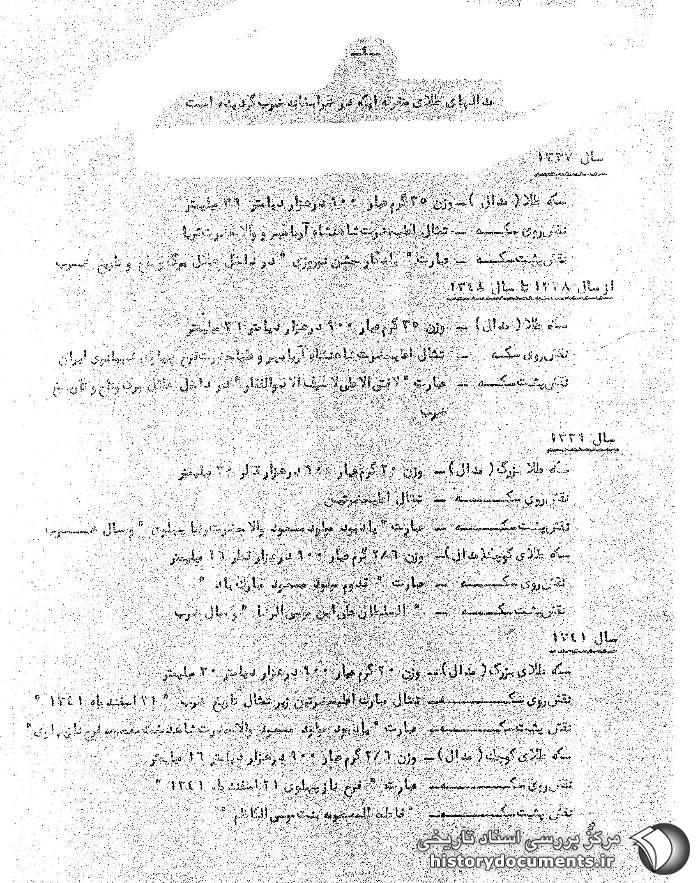 مدالهای طلای متفرقه ایکه در ضرابخانه ضرب گردیده است
سال ۱۳۳۷
سکه طلا ( مدال ) – وزن ۳۵ گرم عیار ۹۰۰ درهزار دیامتر ۳۹ میلیمتر
نقش روی سکه – تمثال اعلیحضرت شاهنشاه آریامهر و والاحضرت ثریا
نقش پشت سکه – عبارت " یادگار جشن نوروزی " در داخل هلال برگ و تاریخ ضرب
از سال ۱۳۳۸ تا سال ۱۳۴۸
سکه طلا ( مدال ) – وزن ۳۵ گرم عیار ۹۰۰ درهزار دیامتر میلیمتر
نقش روی سکه – تمثال اعلیحضرت شاهنشاه آریامهر و علیاحضرت فرح پهلوی شهبانوی ایران
نقش پشت سکه – عبارت " لافتی الاعلی لاسیف الا ذوالفقار " در داخل هلال برگ و تاج و تاریخ
ضرب
سال ۱۳۳۹
سکه طلا بزرگ ( مدال ) – وزن ۲۰ گرم عیار ۹۰۰ درهزار قطر میلیمتر
نقش روی سکه – تمثال اعلیحضرتین
نقش پشت سکه – عبارت " یادبود میلاد مسعود والاحضرت رضا پهلوی " و سال ضرب
سکه طلای کوچک ( مدال ) – وزن ۲/۶ گرم عیار ۹۰۰ درهزار قطر ۱۶ میلیمتر
نقش روی سکه – عبارت " قدوم میلاد مسعود مبارک باد "
نقش پشت سکه – " السلطان علی ابن موسی الرضا " و سال ضرب
سال ۱۳۴۱
سکه طلای بزرگ ( مدال ) – وزن ۲۰ گرم عیار ۹۰۰ درهزار دیامتر ۳۰ میلیمتر
نقش روی سکه – تمثال مبارک اعلیحضرتین زیر تمثال تاریخ ضرب " ۲۱ اسفند ماه ۱۳۴۱ "
نقش پشت سکه – عبارت " یادبود میلاد مسعود والاحضرت شاهدخت فرحناز پهلوی "
سکه طلای کوچک ( مدال ) – وزن ۲/۶ گرم عیار ۹۰۰ درهزار دیامتر ۱۶ میلیمتر
نقش روی سکه – عبارت " فرحناز پهلوی ۲۱ اسفند ماه ۱۳۴۱ "
نقش پشت سکه – " فاطمه المعصومه بنت موسی الکاظم "
مرکز بررسی اسناد تاریخی
historydocuments.ir